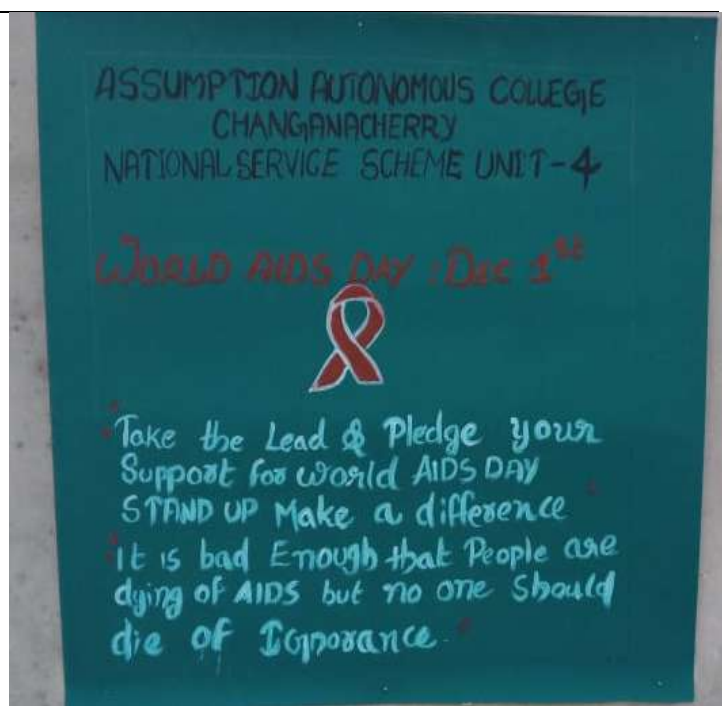 ASSUMPTION AUTONOMOUS COLLEGE
CHANGANACHERRY
NATIONAL SERVICE SCHEME UNIT-4
WORLD AIDS DAY : DEC 1st
"Take the Lead & Pledge your
Support for World AIDS DAY
STAND UP Make a difference"
"It is bad Enough that People are
dying of AIDS but no one Should
die of Ignorance"